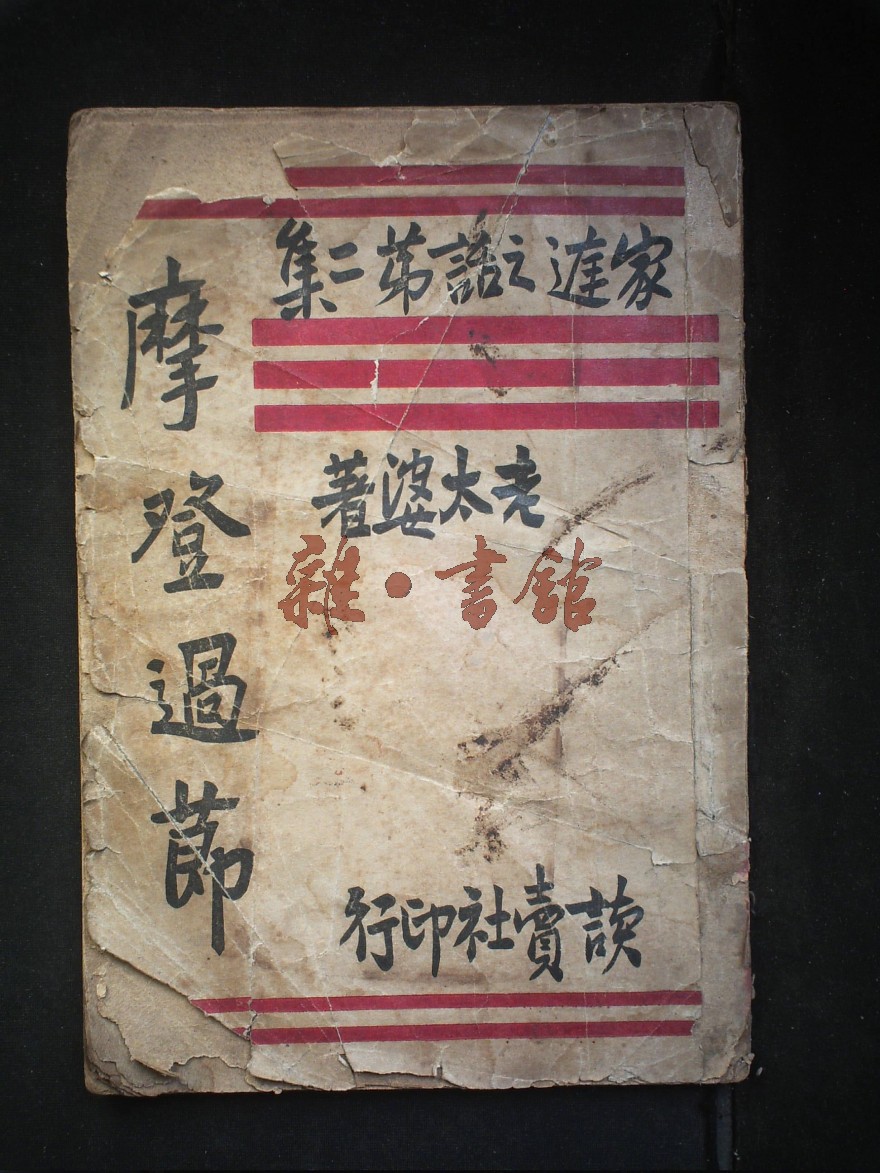 家庭之話苐二集
摩登過莭
老太婆著
雜·書館
讀賣社印行